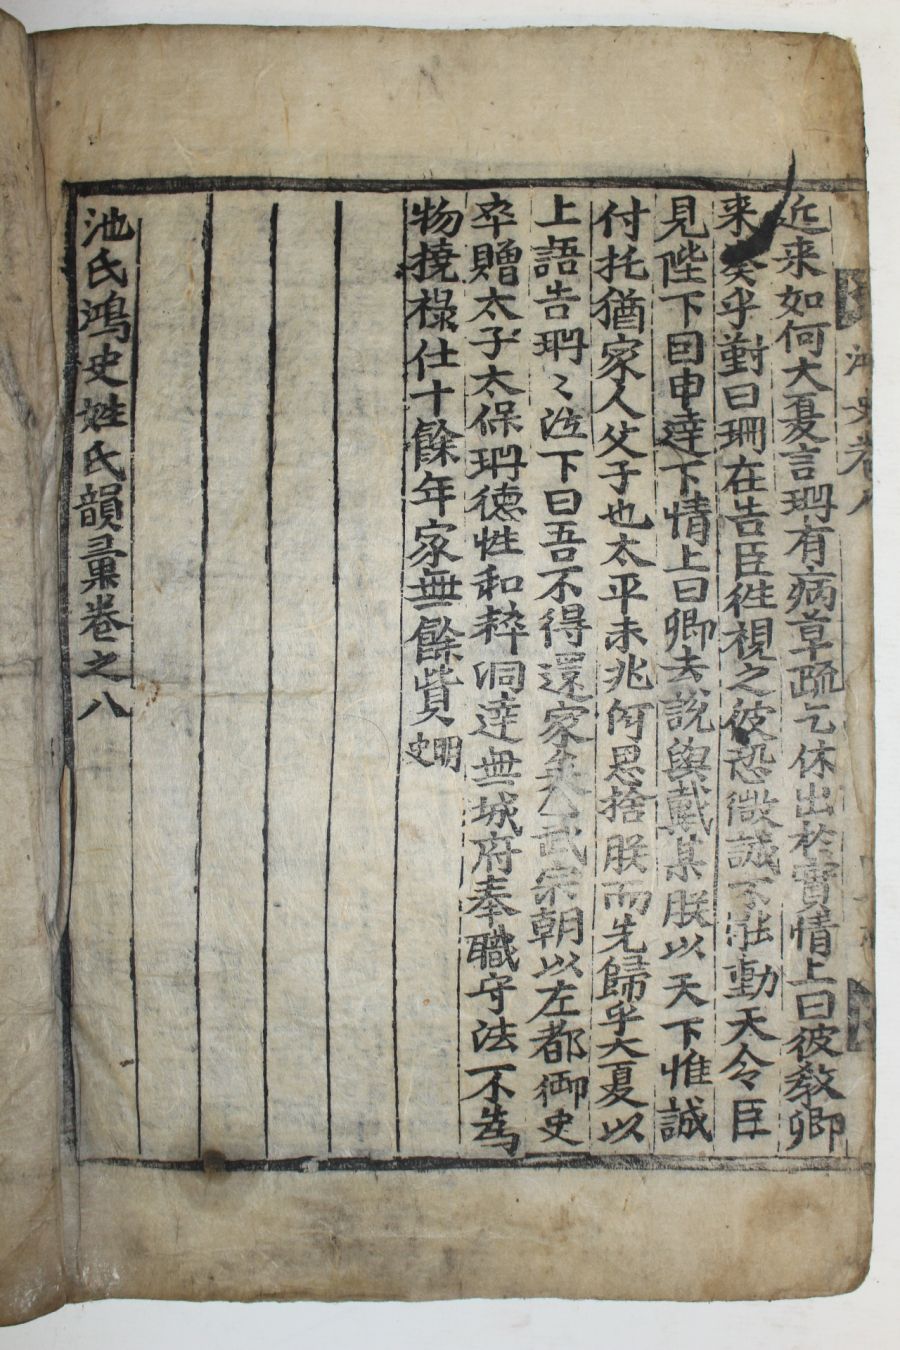 近来如何大夏言珊有病章疏乞休出於實情上曰彼敎卿
来奏乎對曰珊在告臣徃視之彼恐微誠不能動天令臣
見陛下曰申達下情上曰卿去說與戴某朕以天下惟誠
付托猶家人父子也太平未兆何忍捨朕而先歸乎大夏以
上語告珊〻泣下曰吾不得還家矣武宗朝以左都御史
卒贈太子太保珊德性和粹洞達無城府奉職守法不為
物撓祿仕十餘年家無餘貲明史
池氏鴻史姓氏韻彙卷之八
史卷八